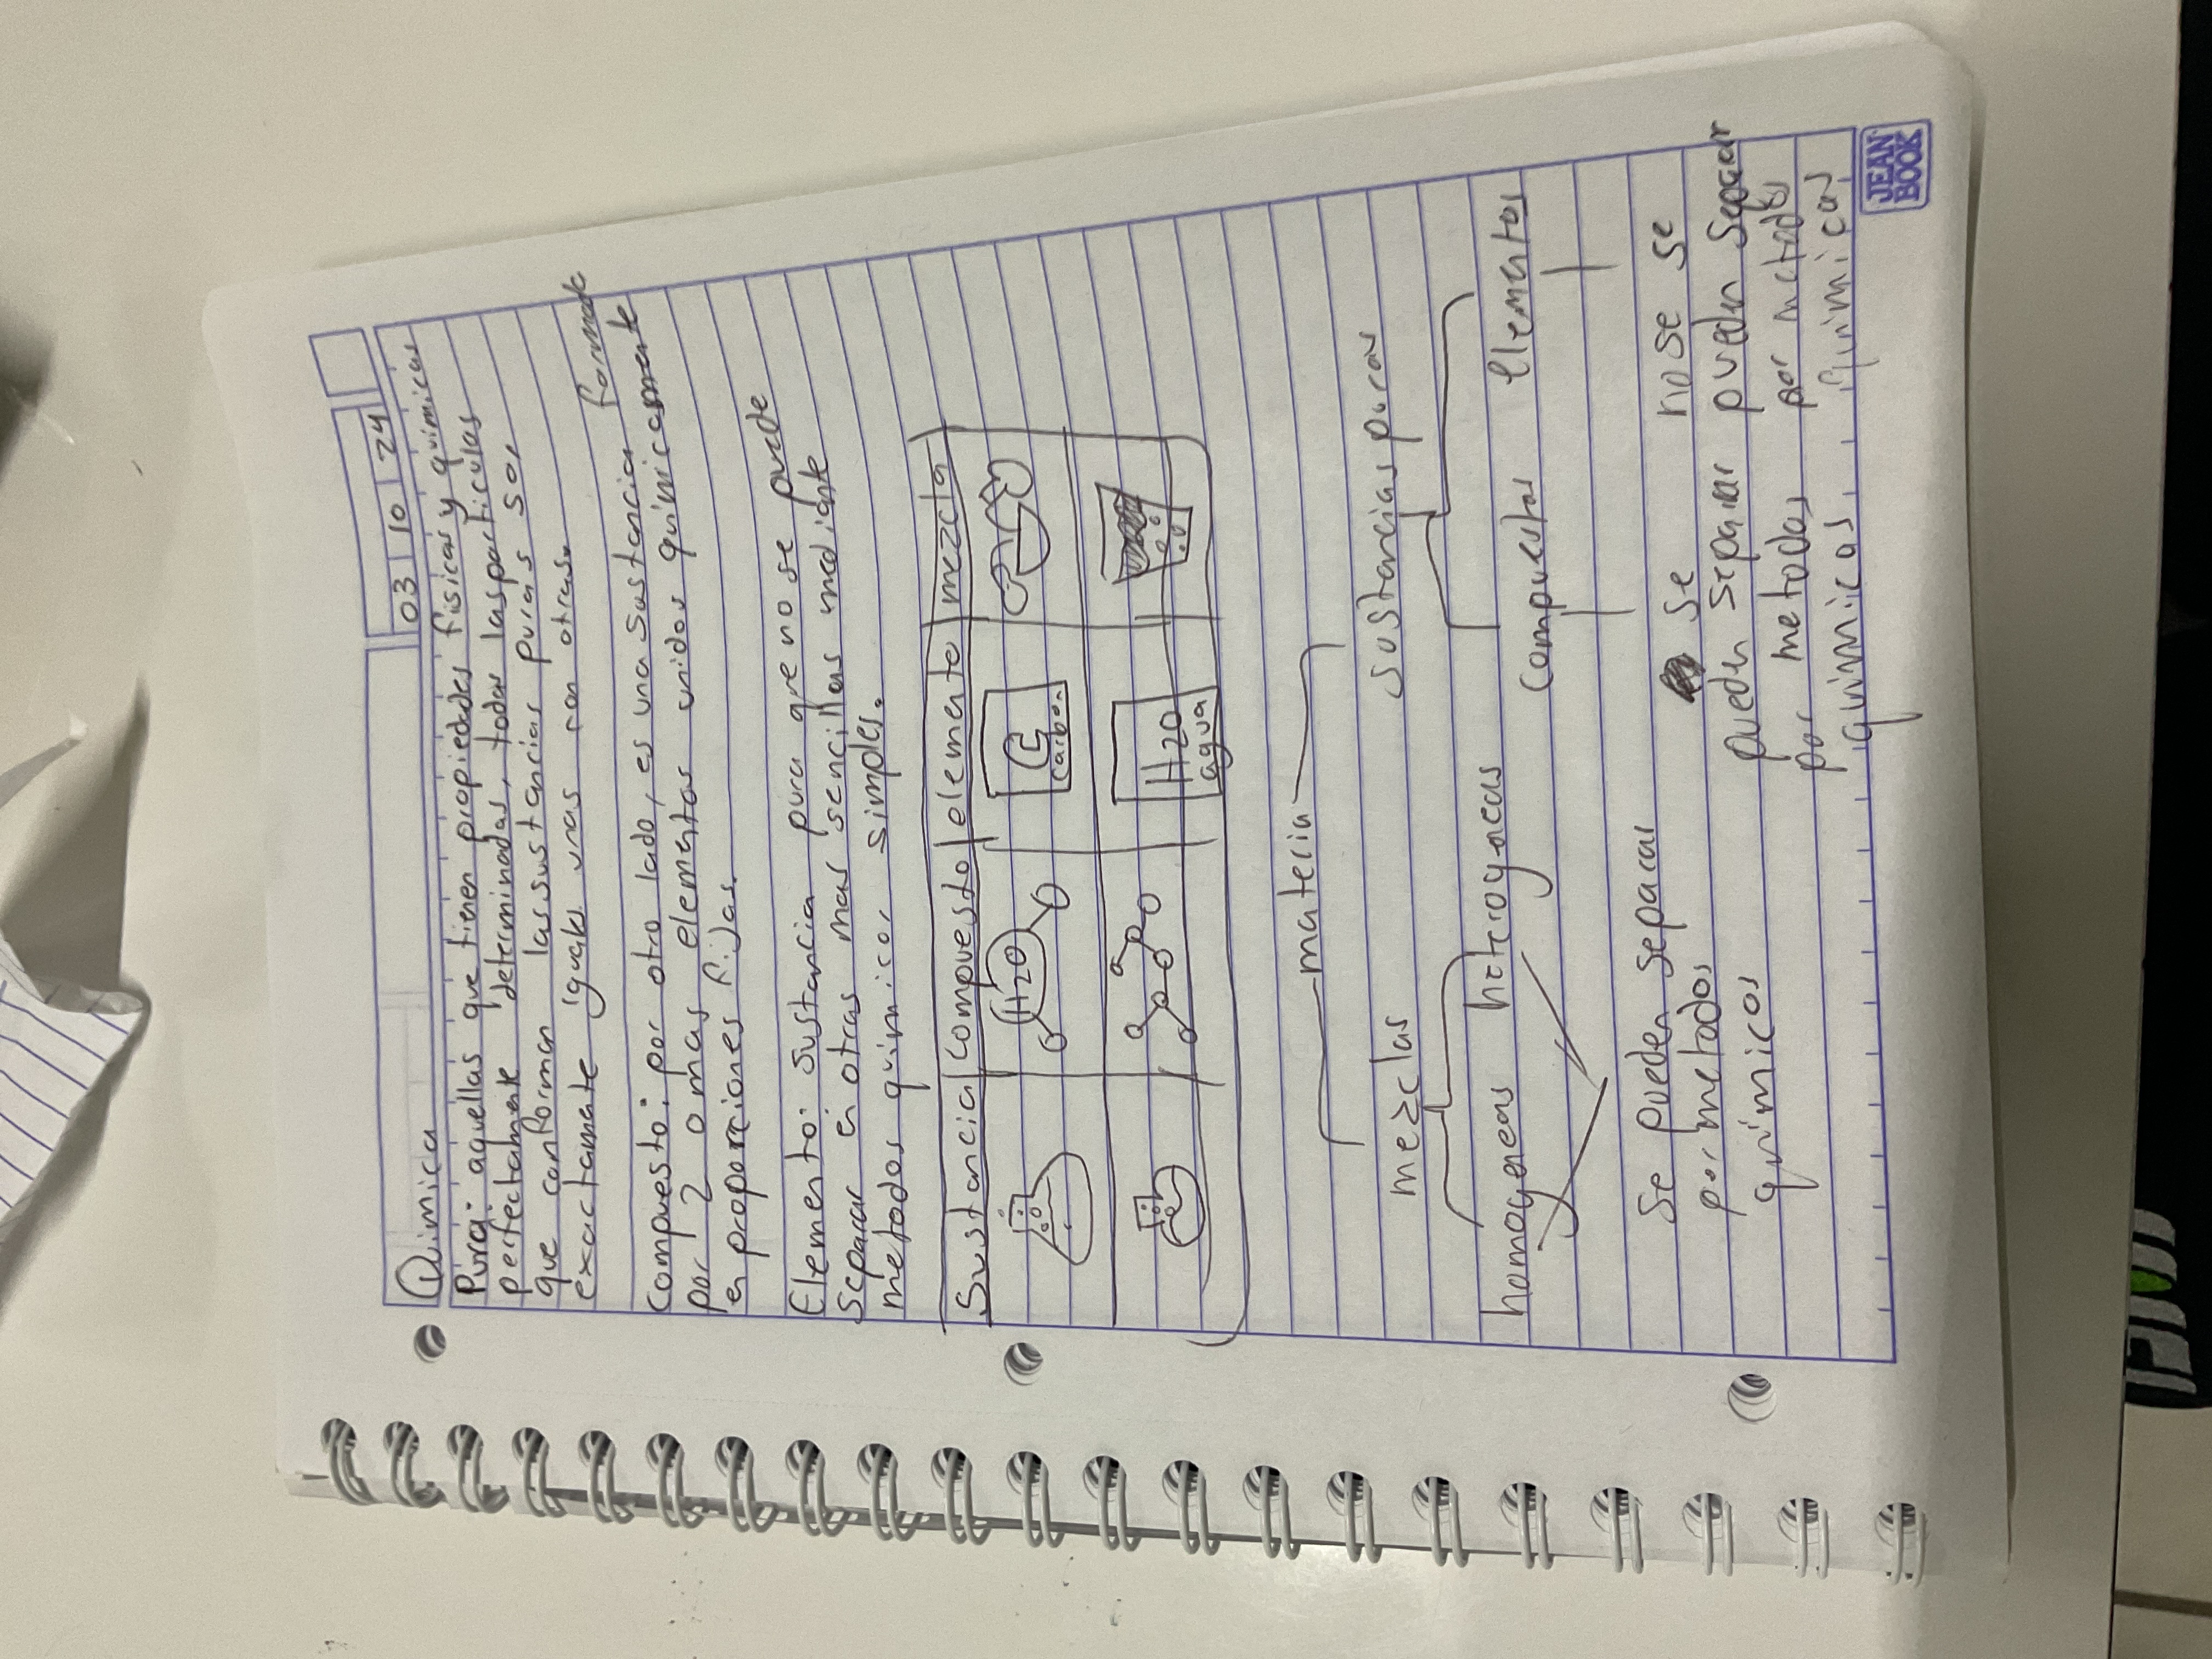 03 10 24
Quimica
Pura: aquellas que tienen propiedades fisicas y quimicas
perfectamente determinadas, todas las particulas
que conforman las sustancias puras son
exactamente iguales unas con otras.
Compuesto: por otro lado, es una sustancia formada
por 2 o mas elementos unidos quimicamente
en proporciones fijas.
Elemento: sustancia pura que no se puede
separar en otras mas sencillas mediante
metodos quimicos simples.
Sustancia compuesto elemento mezcla
H2O C
carbon
H2O
agua
materia
mezclas sustancias puras
homogeneas heterogeneas compuestos elementos
Se pueden separar se no se se
por metodos pueden separar pueden separar
quimicos por metodos por metodos
quimicos. quimicos
JEAN
BOOK